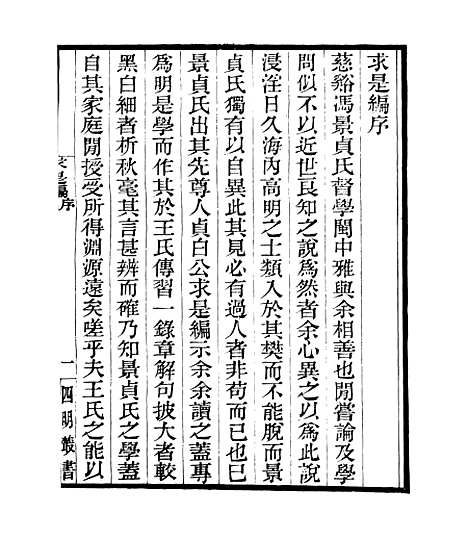 求是編序
慈谿馮景貞氏督學閩中雅與余相善也閒嘗論及學
問似不以近世良知之說為然者余心異之以為此說
浸淫日久海內高明之士類入於其樊而不能脫而景
貞氏獨有以自異此其見必有過人者非苟而已也已
景貞氏出其先尊人貞白公求是編示余余讀之蓋專
為明是學而作其於王氏傳習一錄章解句披大者較
黑白細者析秋毫其言甚辨而確乃知景貞氏之學蓋
自其家庭閒授受所得淵源遠矣嗟乎夫王氏之能以
求是編序
一
四明叢書